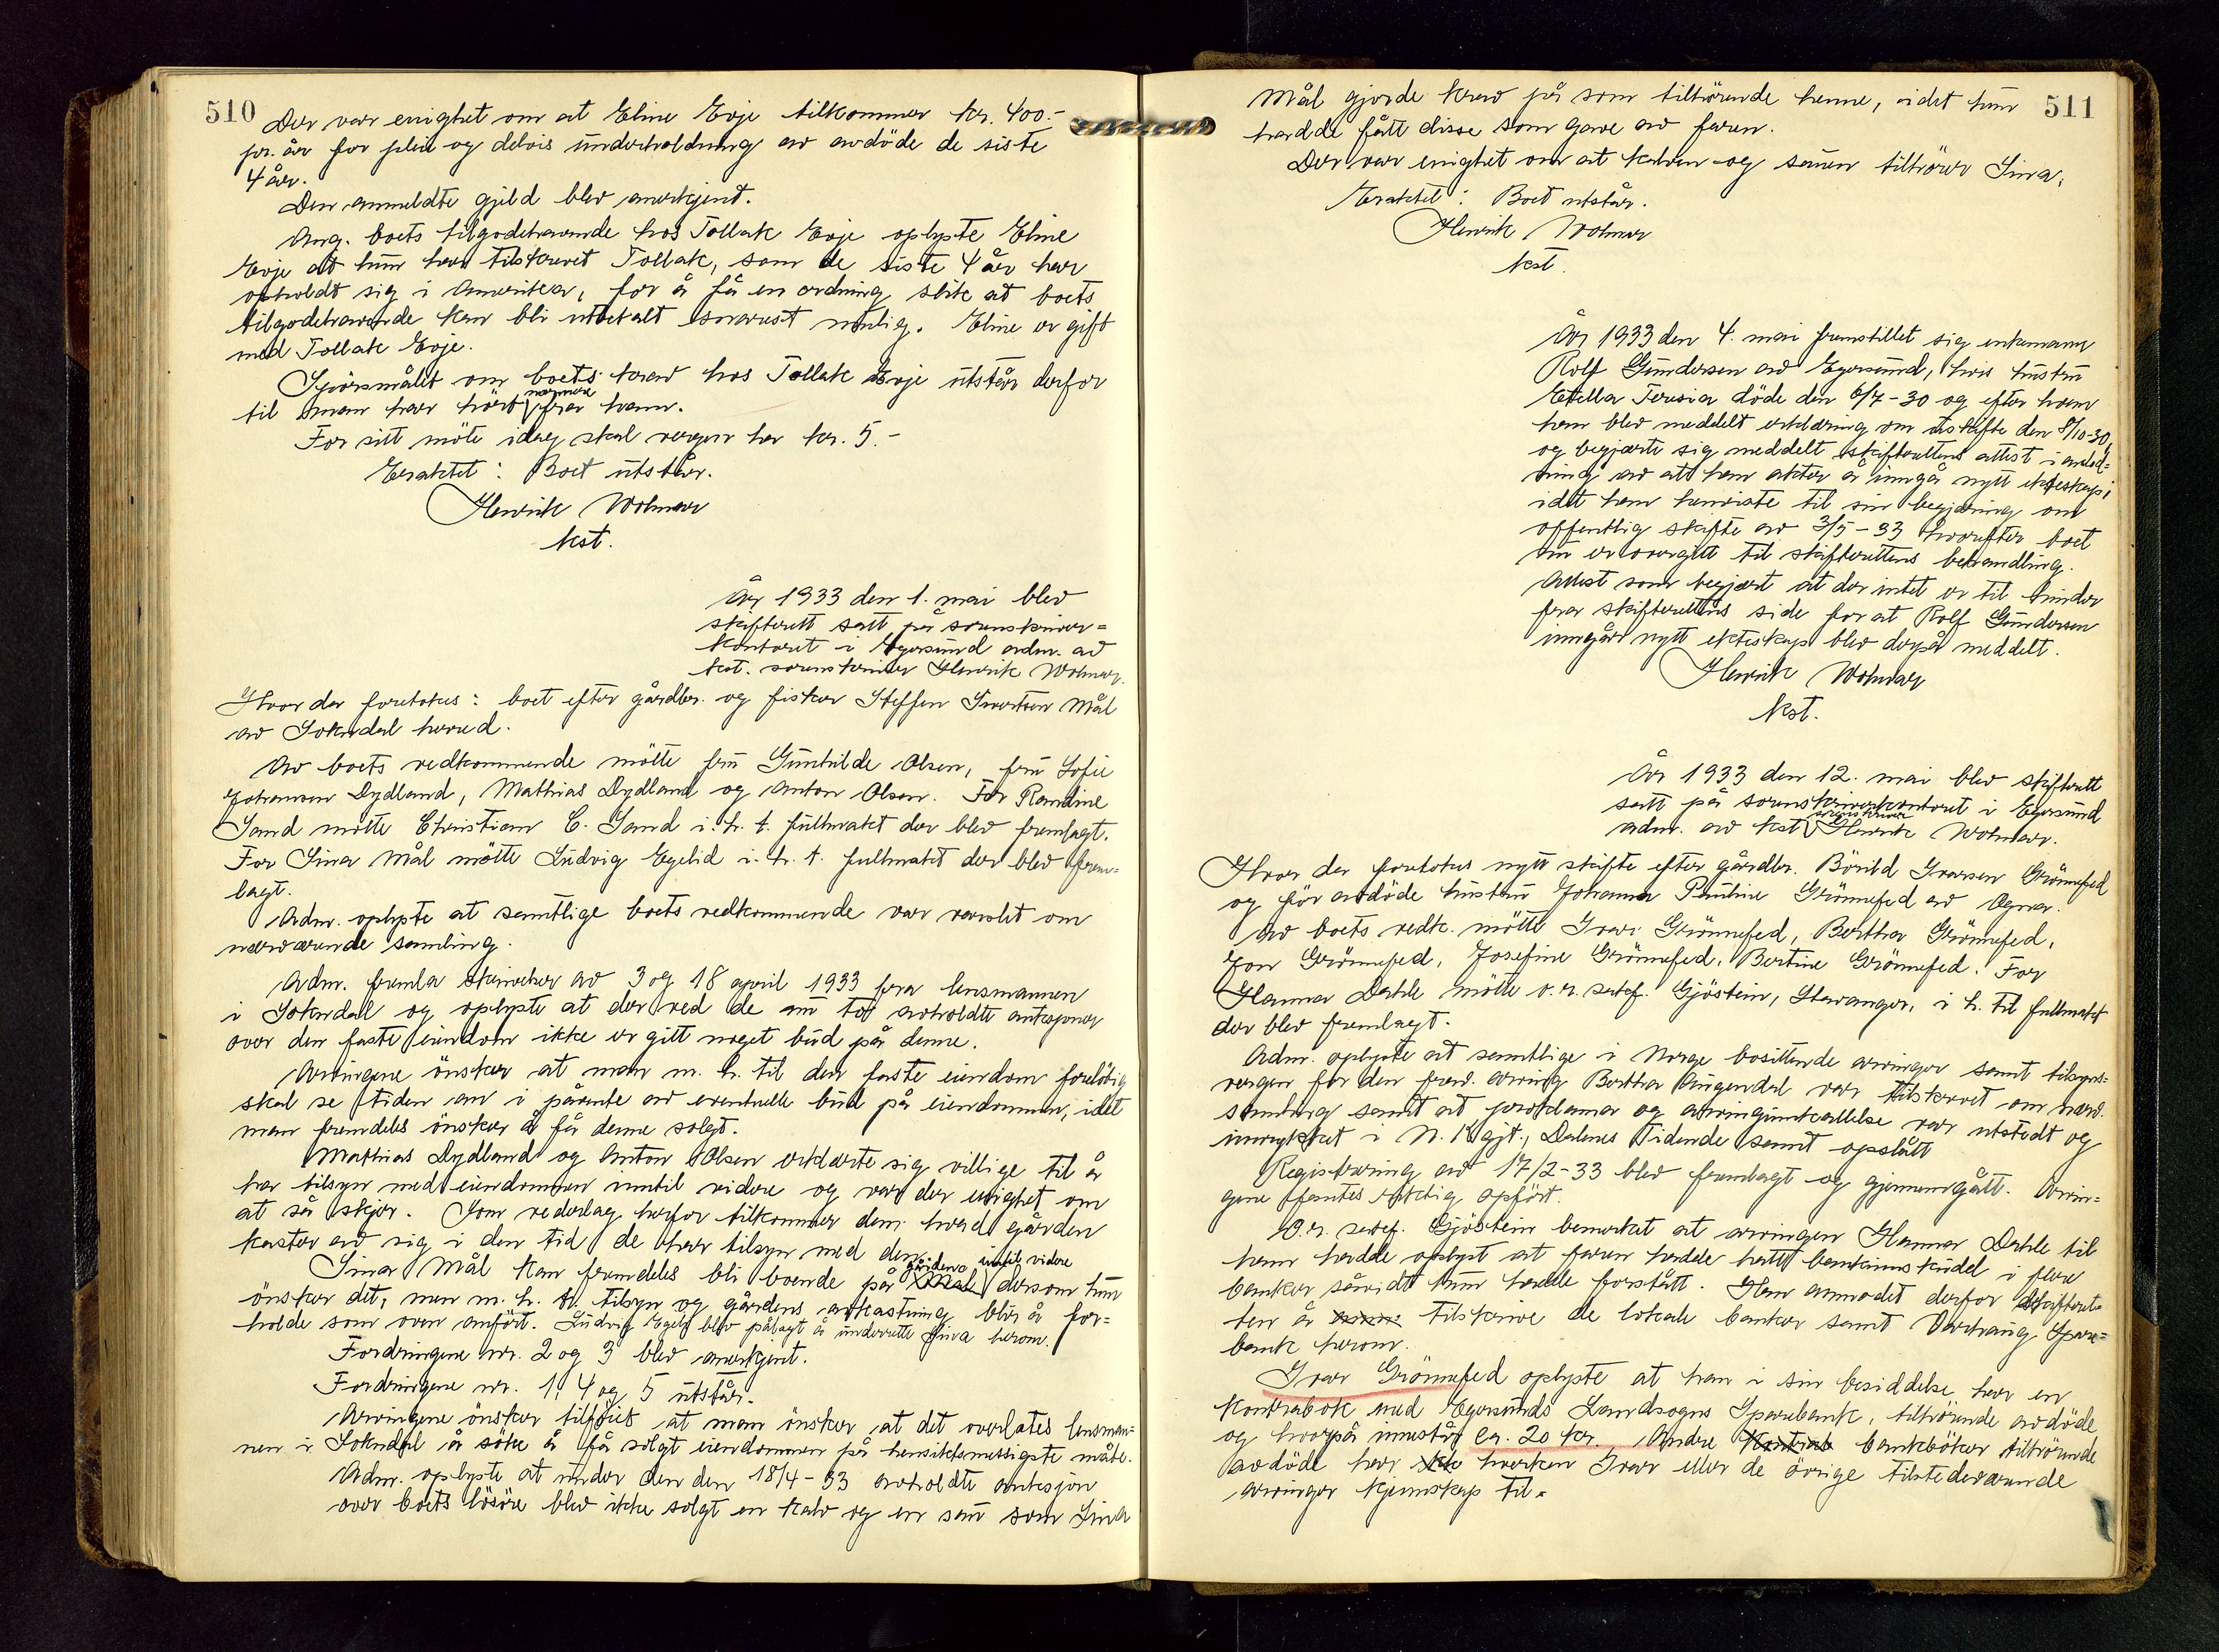 510
Der var enighet om at Eline Evje tilkommer kr. 400.-
pr. år for pleie og delvis underholdning av avdöde de siste
4 år.
Den anmeldte gjeld blev anerkjent.
Ang. boets tilgodehavende hos Tollak Evje oplyste Eline
Evje at hun har tilskrevet Tollak, som de siste 4 år har
opholdt sig i Amerika, for å få en ordning slik at boets
tilgodehavende kan bli utbetalt snarest mulig. Eline er gift
med Tollak Evje.
Spörsmålet om boets krav hos Tollak Evje utstår derfor
til man har hört nærmere fra ham.
For sitt möte idag skal vergen ha kr. 5.-
Eraktet: Boet utstår.
Henrik Wolmar
kst.
År 1933 den 1. mai blev
skifterett satt på sorenskriver=
kontoret i Egersund adm. av
kst. sorenskriver Henrik Wolmar.
Hvor der foretokes: boet efter gårdbr. og fisker Steffen Sivertsen Mål
av Sokndal herred.
Av boets vedkommende mötte fru Gunhilde Olsen, fru Sofie
Johansen Dydland, Mathias Dydland og Anton Olsen. For Randine
Sand mötte Christian C. Sand i. h. t. fullmakt der blev fremlagt.
For Sina Mål mötte Ludvig Egelid i. h. t. fullmakt der blev frem=
lagt.
Adm. oplyste at samtlige boets vedkommende var varslet om
nærværende samling.
Adm. fremla skrivelser av 3 og 18 april 1933 fra lensmannen
i Sokndal og oplyste at der ved de nu to avholdte auksjoner
over den faste eiendom ikke er gitt noget bud på denne.
Arvingene önsker at man m. h. til den faste eiendom forelöbig
skal se tiden an i påvente av eventuelle bud på eiendommen, idet
man fremdeles önsker å få denne solgt.
Mathias Dydland og Anton Olsen erklærte sig villige til å
ha tilsyn med eiendommen inntil videre og var der enighet om
at så skjer. Som vederlag herfor tilkommer dem hvad gården
kaster av sig i den tid de har tilsyn med den.
Sina Mål kan fremdeles bli boende på gården inntil videre dersom hun
önsker det, men m. h. til tilsyn og gårdens avkastning blir å for=
holde som oven anfört. Ludvig Egelid blev pålagt å underrette Sina herom.
Fordringene nr. 2 og 3 blev anerkjent.
Fordringene nr. 1, 4 og 5 utstår.
Arvingene önsker tilföiet at man önsker at det overlates lensman=
nen i Sokndal å söke å få solgt eiendommen på hensiktsmessigste måte.
Adm. oplyste at under den den 18/4-33 avholdte auksjon
over boets lösöre blev ikke solgt en kalv og en sau som Sina
511
Mål gjorde krav på som tilhörende henne, idet hun
hadde fått disse som gave av faren.
Der var enighet om at kalven og sauen tilhörer Sina.
Eraktet: Boet utstår.
Henrik Wolmar
kst.
År 1933 den 4. mai fremstillet sig enkemann
Rolf Gundersen av Egersund, hvis hustru
Etella Teresia döde den 6/7-30 og efter hvem
ham blev meddelt erklæring om uskifte den 8/10-30,
og begjærte sig meddelt skifterettens attest i anled=
ning av att han akter å inngå nytt ekteskap,
idet han henviste til sin begjæring om
offentlig skifte av 3/5-33 hvorefter boet
nu er overgitt til skifterettens behandling.
Attest som begjært at der intet er til hinder
fra skifterettens side for at Rolf Gundersen
inngår nytt ekteskap blev derpå meddelt.
Henrik Wolmar
kst.
År 1933 den 12. mai blev skifterett
satt på sorenskriverkontoret i Egersund
adm. av kst sorenskriver Henrik Wolmar.
Hvor der foretokes nytt skifte efter gårdbr. Börild Ivarsen Grönnefed
og för avdöde hustru Johanna Pauline Grönnefed av Ogna.
Av boets vedk. mötte Ivar Grönnefed, Bertha Grönnefed,
Jon Grönnefed, Josefine Grönnefed, Bertine Grönnefed. For
Hanna Dahle mötte o.r. sakf. Gjöstein, Stavanger, i h. til fullmakt
der blev fremlagt.
Adm. oplyste at samtlige i Norge bosittende arvinger samt tilsyns=
vergen for den fravær. arving Bertha Augendal var tilskrevet om nærv.
samling samt at proklama og arvinginnkallelse var utstedt og
innrykket i N. K gjt., Dalenes Tidende samt opslått
Registrering av 17/2-33 blev fremlagt og gjennemgått. Arvin=
gene fantes riktig opfört.
O.r. sakf. Gjöstein bemerket at arvingen Hanna Dahle til
ham hadde oplyst at faren hadde hatt bankinnskudd i flere
banker såvidt hun hadde forstått. Han anmodet derfor skifteret=
ten å tilskrive de lokale banker samt Varhaug Spare=
bank herom.
Ivar Grönnefed oplyste at han i sin besiddelse har en
kontrabok med Egersunds Landsogns Sparebank, tilhörende avdöde
og hvorpå innestår ca. 20 kr. Andre bankböker tilhörende
avdöde har hverken Ivar eller de övrige tilstedeværende
arvinger kjennskap til.